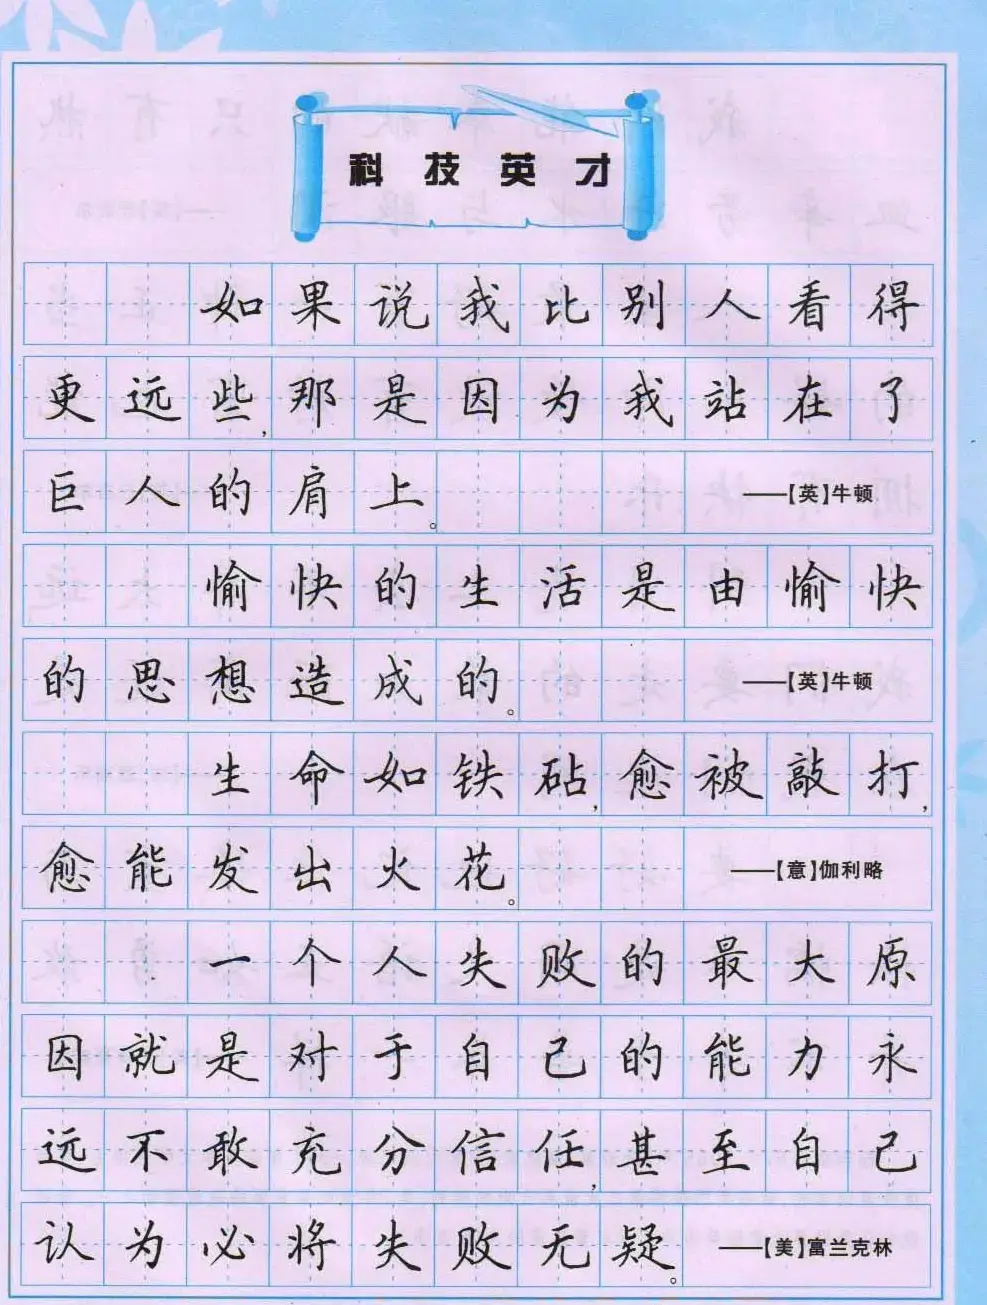 科技英才
如果说我比别人看得
更远些,那是因为我站在了
巨人的肩上。——【英】牛顿
愉快的生活是由愉快
的思想造成的。——【英】牛顿
生命如铁砧,愈被敲打,
愈能发出火花。——【意】伽利略
一个人失败的最大原
因就是对于自己的能力永
远不敢充分信任,甚至自己
认为必将失败无疑。——【美】富兰克林